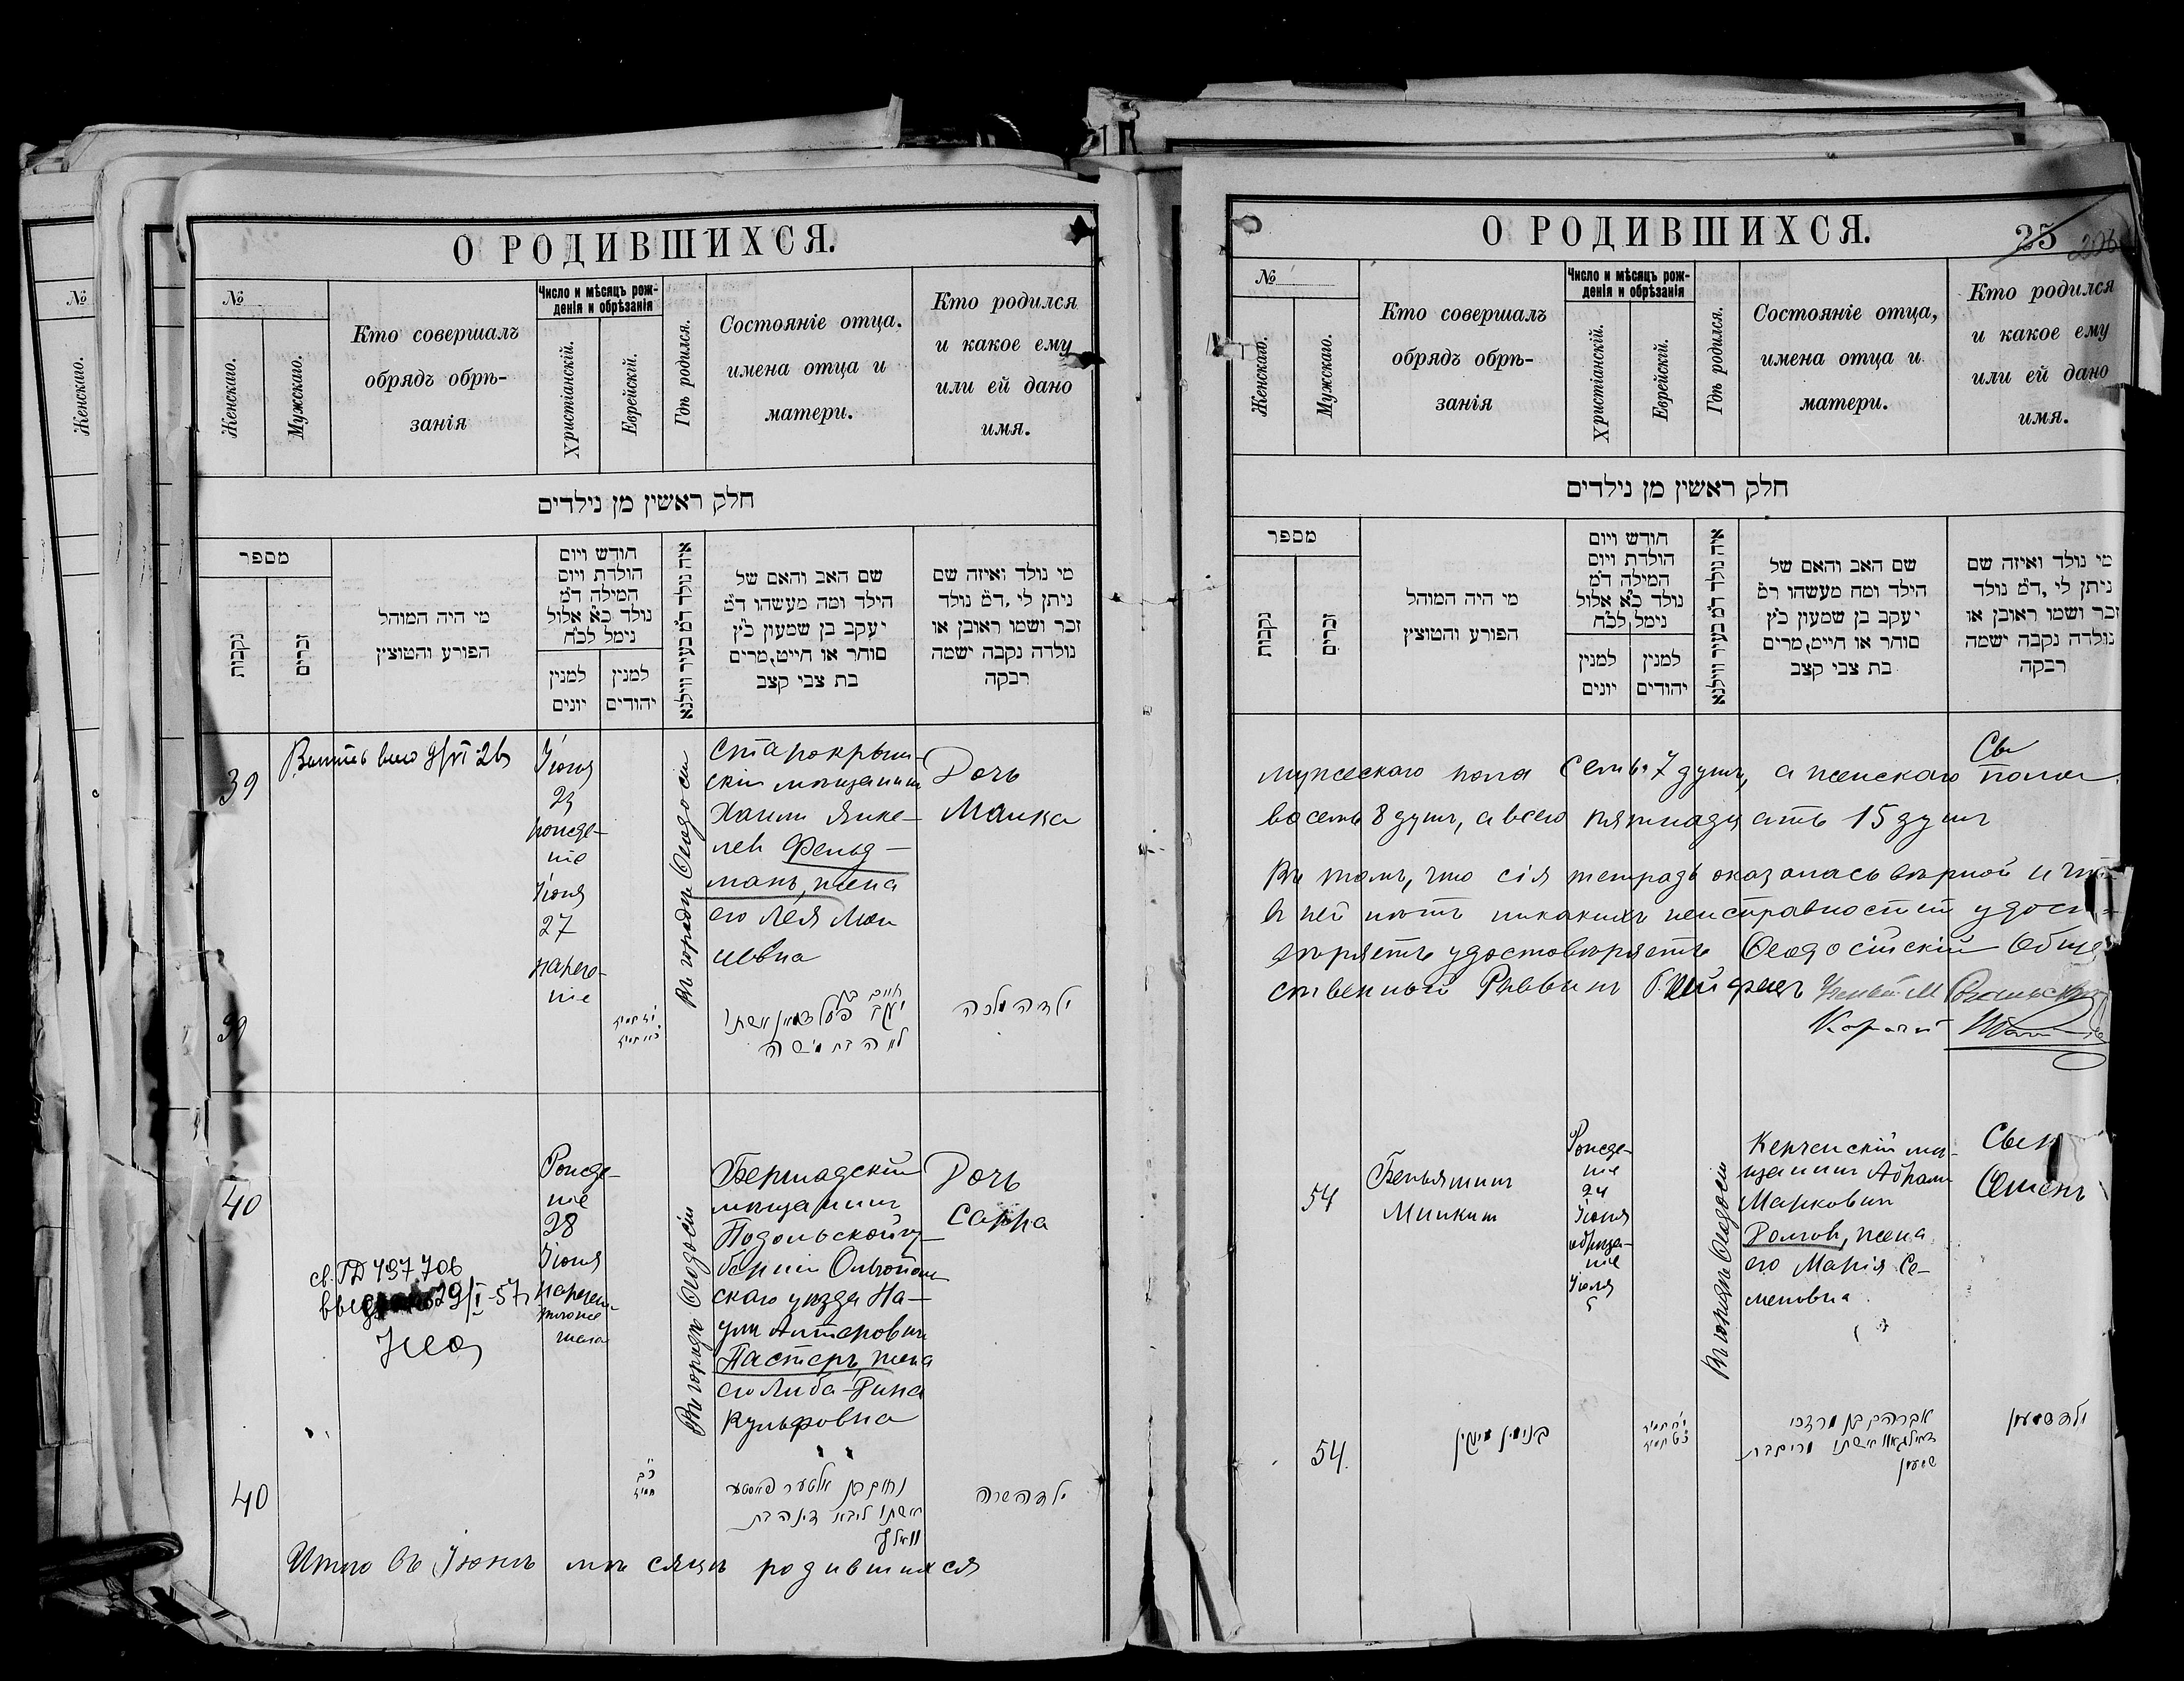 О РОДИВШИХСЯ.
№
Женскаго.
Мужскаго.
Кто совершалъ
обрядъ обрѣ-
занія
Число и мѣсяцъ рож-
денія и обрѣзанія
Христіанскій.
Еврейскій.
Гдѣ родился.
Состояніе отца.
имена отца и
матери.
Кто родился
и какое ему
или ей дано
имя.
חלק ראשין מן נילדים
מספר
נקבות
זכרים
מי היה המוהל
הפורע והמוצץ
חודש ויום
הולדת ויום
המילה ד״מ
נולד כ״א אלול
נימל לכ״ח
למנין
יונים
למנין
יהודים
איה נולד ד״מ בעיר ווילנא
שם האב והאם של
הילד ומה מעשהו ד״מ
יעקב בן שמעון כ״ץ
סוחר או חייט,מרים
בת צבי קצב
מי נולד ואיזה שם
ניתן לי ,ד״מ נולד
זכר ושמו ראובן או
נולדה נקבה ישמה
רבקה
39
Іюня
23
рожде-
ніе
Іюня
27
нарече-
ніе
Въ городѣ Ѳеодосіи
Старокрым-
скій мѣщанинъ
Хаимъ Янке-
лев Фельд-
манъ, жена
его Лея Мои-
сеевна
Дочь
Малка
39
חיים בן
יעקב פעלדמאן אשתו
לאה בת משה
ילדה מלכה
40
св. ГД 797.706
29/I-57г
Рожде-
ніе
28
Іюня
нарече-
Въ городѣ Ѳеодосіи
Бершадскій
мѣщанинъ
Подольской гу-
берніи Ольгопол-
скаго уѣзда На-
умъ Алтеровичъ
Пастеръ, жена
его Либа-Дина
Вульфовна
Дочь
Сарра
40
כ״ב
תמוז
נחום בן אלטער פאסטער
אשתו ליבא דינה בת
וואלף
ילדה שרה
Итого въ Іюнѣ мѣсяцѣ родившихся
О РОДИВШИХСЯ.
25
№
Женскаго.
Мужскаго.
Кто совершалъ
обрядъ обрѣ-
занія
Число и мѣсяцъ рож-
денія и обрѣзанія
Христіанскій.
Еврейскій.
Гдѣ родился.
Состояніе отца,
имена отца и
матери.
Кто родился
и какое ему
или ей дано
имя.
חלק ראשין מן נילדים
מספר
נקבות
זכרים
מי היה המוהל
הפורע והמוצץ
חודש ויום
הולדת ויום
המילה ד״מ
נולד כ״א אלול
נימל לכ״ח
למנין
יונים
למנין
יהודים
איה נולד ד״מ בעיר ווילנא
שם האב והאם של
הילד ומה מעשהו ד״מ
יעקב בן שמעון כ״ץ
סוחר או חייט,מרים
בת צבי קצב
מי נולד ואיזה שם
ניתן לי ,ד״מ נולד
זכר ושמו ראובן או
נולדה נקבה ישמה
רבקה
мужескаго пола семь 7 душъ, а женскаго пола
восемь 8 душъ, а всего пятнадцать 15 душъ
Въ томъ, что сія тетрадь оказалась вѣрной и что
въ ней нѣтъ никакихъ неисправностей удосто-
вѣряетъ удостовѣряетъ Ѳеодосійскій Обще-
ственный Раввинъ
54
Беньяминъ
Минкинъ
Рожде-
ніе
24
Іюня
обрѣза-
ніе
Іюля
Въ городѣ Ѳеодосіи
Керченскій мѣ-
щанинъ Абрамъ
Марковичъ
Долговъ, жена
его Марія Се-
меновна
Сынъ
Семенъ
54.
בנימין מינקין
אברהם בן מרדכי
דאלגאוו אשתו מרים בת
שמעון
ילד שמעון